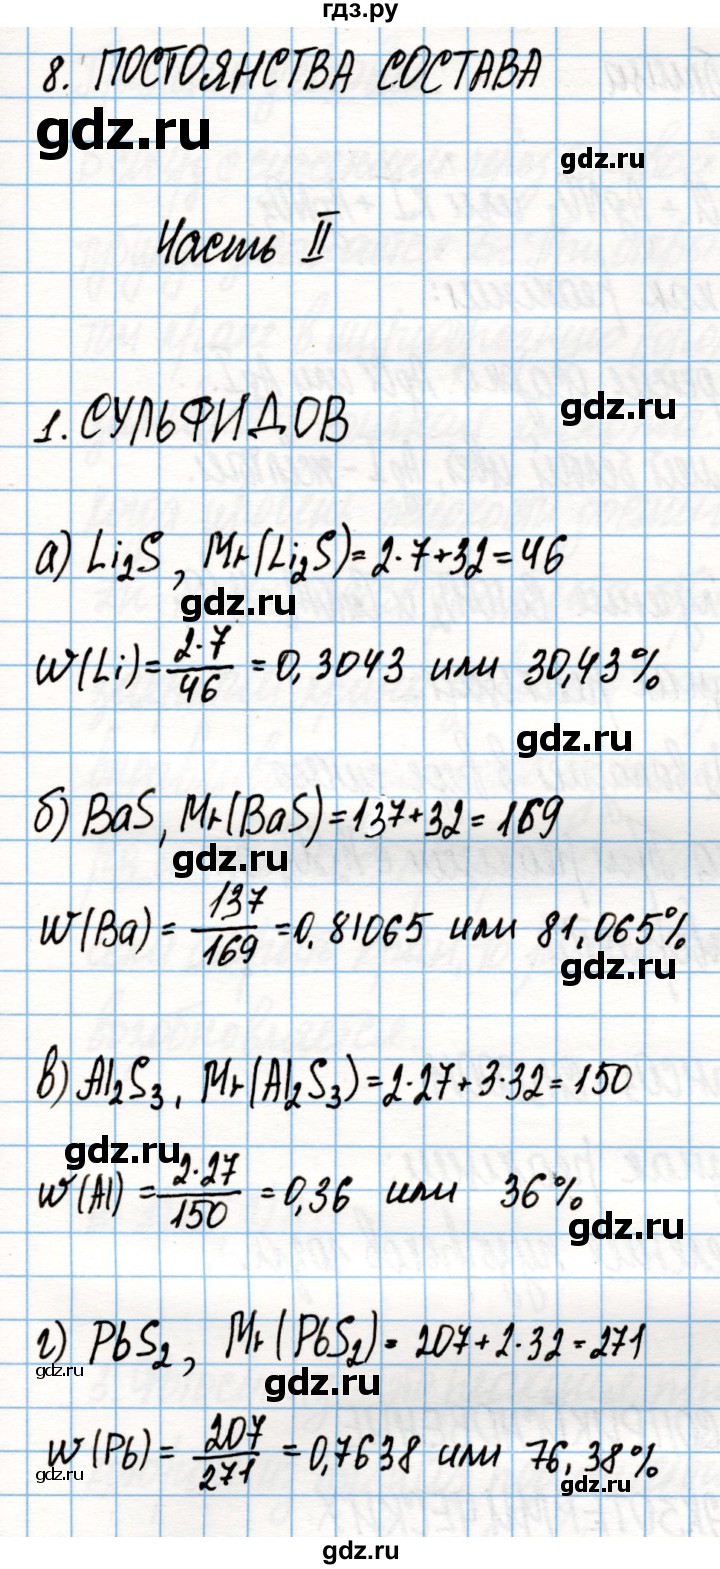 гдз.ру
8. ПОСТОЯНСТВА СОСТАВА
gdz.ru
gdz.ru
Часть II
gdz.ru
1. СУЛЬФИДОВ
а) Li₂S, Mr(Li₂S)=2·7+32=46
gdz.ru
w(Li)=2·7/46=0,3043 или 30,43%
gdz.ru
б) BaS, Mr(BaS)=137+32=169
gdz.ru
w(Ba)=137/169=0,81065 или 81,065%
gdz.ru
в) Al₂S₃, Mr(Al₂S₃)=2·27+3·32=150
gdz.ru
w(Al)=2·27/150=0,36 или 36%
gdz.ru
г) PbS₂, Mr(PbS₂)=207+2·32=271
gdz.ru
gdz.ru
w(Pb)=207/271=0,7638 или 76,38%
gdz.ru
gdz.ru
gdz.ru